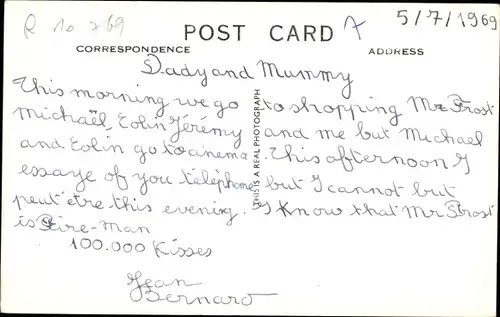 R 10 769
POST CARD
A
5/7/1969
CORRESPONDENCE
ADDRESS
Dady and Mummy
This morning we go to shopping Mr Frost
Michaël, Colin Jérémy and me but Michael
and Colin go to cinema. This afternoon I
essaye of you téléphone but I cannot but
peut être this evening. I Know that Mr Frost
is Fire-Man
100.000 Kisses
Jean
Bernard
THIS IS A REAL PHOTOGRAPH